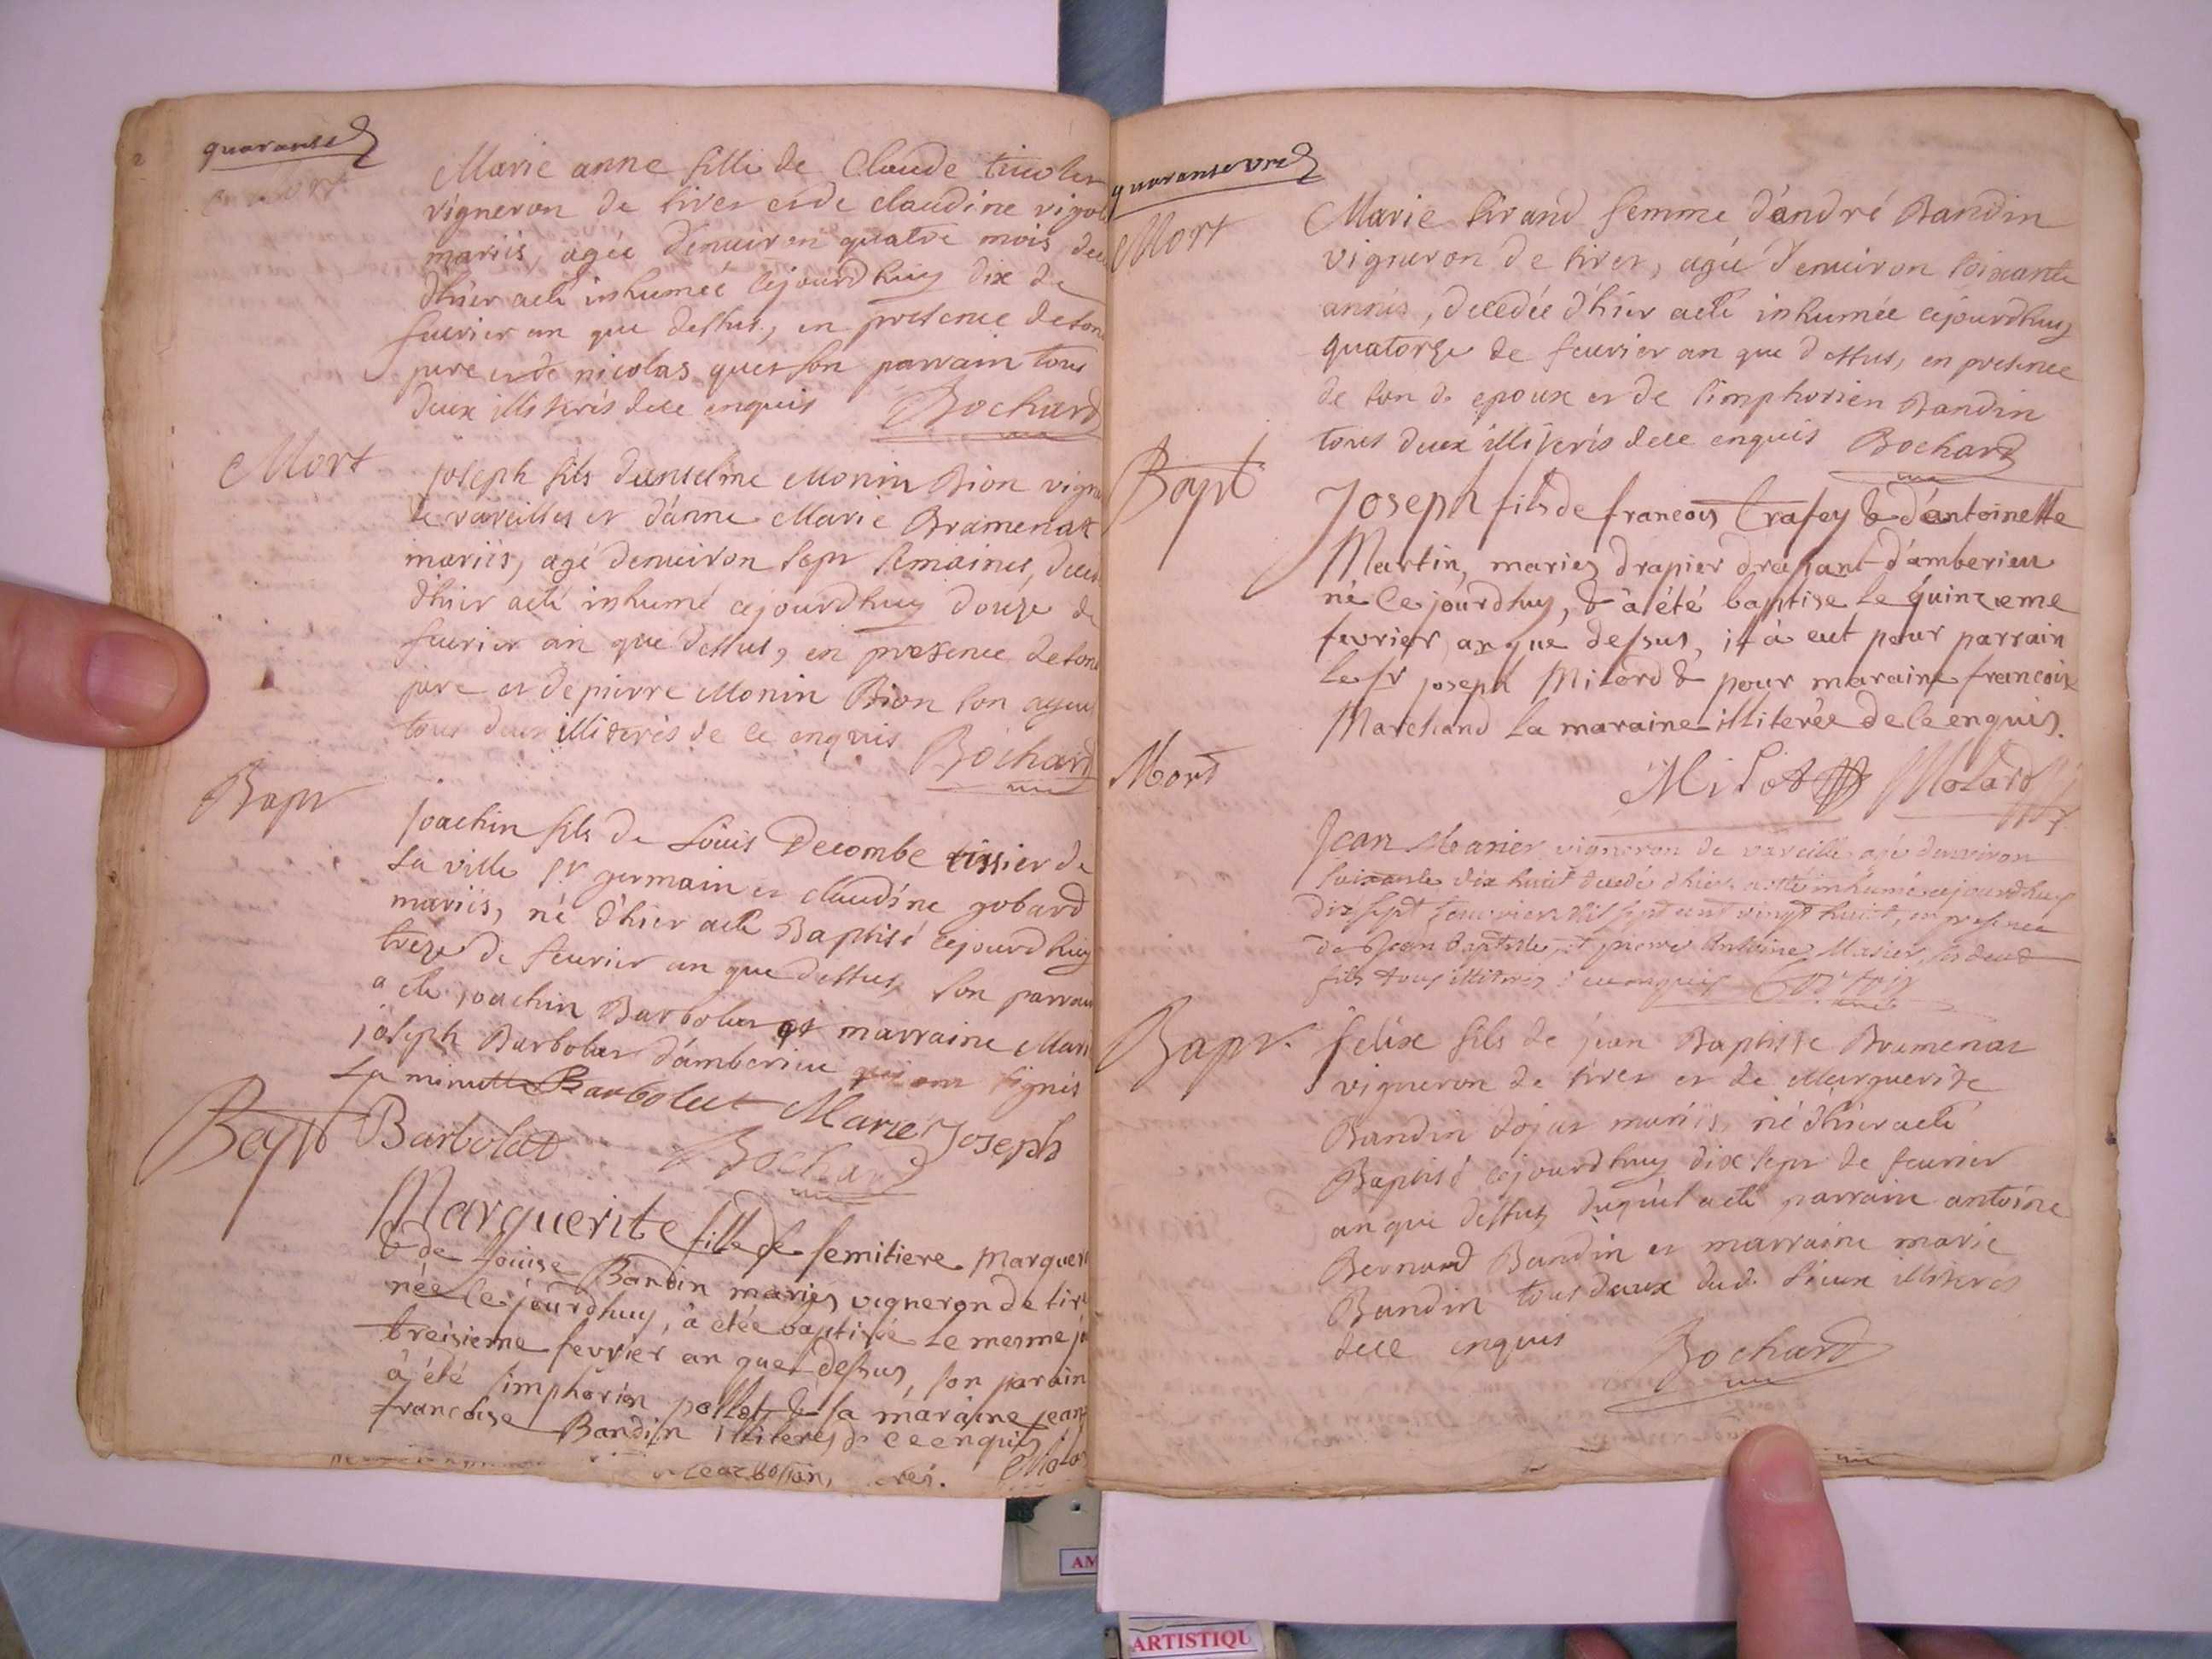 quarante
Marie anne fille de Claude
vigneron de tirer et de claudine
mariés, agée denuiron quatre mois, dec
d'hier aeté inhumée cejourdhuy dix de
feurier an que dessus, en presence de son
pere et de nicolas quet son parrain tous
deux illiterés dece enquis Bochard
Mort
joseph fils danselme Monin Bion vign
de vareilles et d'anne Marie Bramenat
mariés, agé denuiron sept semaines, dece
d'hier aeté inhumé cejourdhuy douze de
feurier an que dessus, en presence de son
pere et de pierre Monin Bion son ayeu
tous deux illiterés de ce enquis Bochard
Bapt
joachin fils de Louis Decombe tissier de
la ville st germain et claudine gobard
mariés, né d'hier aeté Baptisé cejourdhuy
treze de feurier an que dessus, son parrain
a eté joachin Barbolat et marraine Mari
joseph Barbolat d'amberieu qui ont signés
la minutte Barbolat Marie Joseph
Bapt Barbolat Bochard
Marguerite fille de semitiere Marguer
& de Louise Bandin mariés vigneron de tire
née ce jourdhuy, à étée baptisée le mesme jo
treisieme fevrier an que dessus, son parain
à été simphorien pollet & sa maraine jean
francoise Bandin illiterés de ce enquis
quarante une
Mort
Marie Sirand femme d'andré Bandin
vigneron de tirer, agée denuiron soixante
années, decedée d'hier aeté inhumée cejourdhuy
quatorze de feurier an que dessus, en presence
de son d. epoux et de simphorien Bandin
tous deux illiterés dece enquis Bochard
Bapt
Joseph fils de francois Trafey & d'antoinette
Martin, mariez drapier drapant d'amberieu
né ce jourdhuy, & a été baptise le quinzeme
fevrier an que dessus, il à eut pour parrain
le sr joseph Milord & pour maraine francoise
Marchand la maraine illiterée de ce enquis.
Mort
Milot Molard
Jean Manier vigneron de vareille agé denuiron
soixante dix huit decedé d'hier a été inhumé cejourdhuy
dix sept feuvrier mil sept cent vingt huict, en presence
de Jean baptiste, et pierre Antoine Masier, ses deux
fils tous illiterez
Bapt.
felix fils de jean Baptiste Bramenat
vigneron de tirer et de Marguerite
Bandin dojat mariés, né d'hier aeté
Baptisé cejourdhuy dix sept de feurier
an que dessus duquel aeté parrain antoine
Bernard Bandin et marraine marie
Bandin tous deux dud. lieux illiterés
dece enquis Bochard
ARTISTIQU